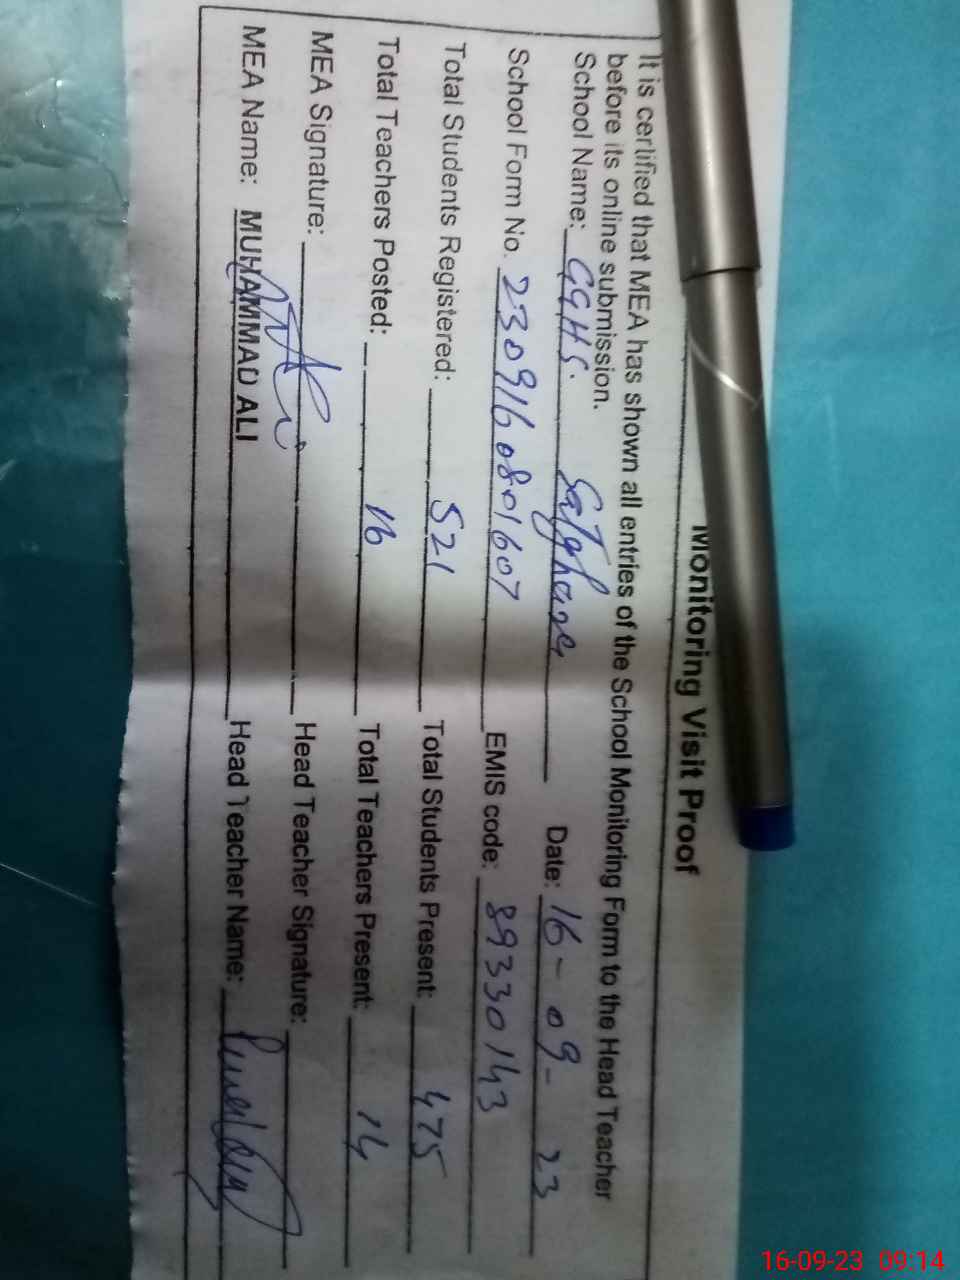 Monitoring Visit Proof
It is certified that MEA has shown all entries of the School Monitoring Form to the Head Teacher
before its online submission.
School Name: GGHS. Satghara Date: 16-09-23
School Form No. 2309160801607 EMIS code: 89330143
Total Students Registered: 521 Total Students Present: 475
Total Teachers Posted: 16 Total Teachers Present: 14
MEA Signature: Head Teacher Signature:
MEA Name: MUHAMMAD ALI Head Teacher Name:
16-09-23 09:14